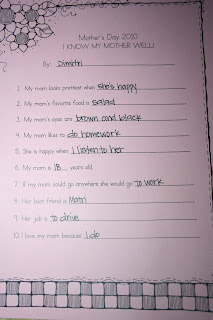 Mother's Day 2010
I KNOW MY MOTHER WELL!
By: Dimitri
1. My mom looks prettiest when she's happy
2. My mom's favorite food is salad
3. My mom's eyes are brown and black
4. My mom likes to do homework
5. She is happy when I listen to her
6. My mom is 18 years old.
7. If my mom could go anywhere she would go to work
8. Her best friend is Matri
9. Her job is to drive
10. I love my mom because I do